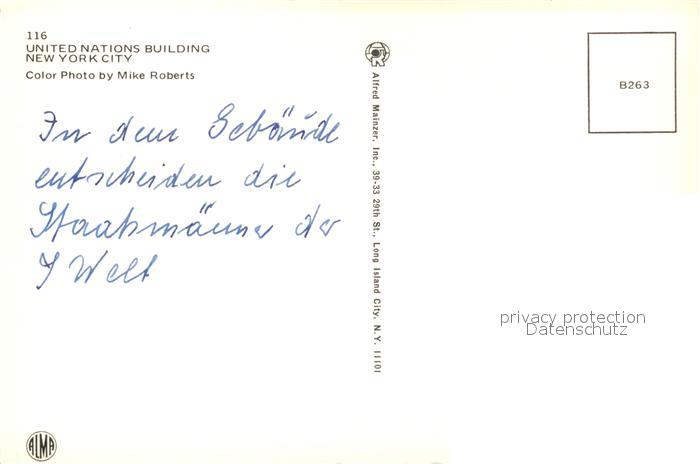 116
UNITED NATIONS BUILDING
NEW YORK CITY
Color Photo by Mike Roberts
In dem Gebäude
entscheiden die
Staatsmänner der
Welt
Alfred Mainzer, Inc., 39-33 29th St., Long Island City, N.Y. 11101
B263
privacy protection
Datenschutz
ALMA